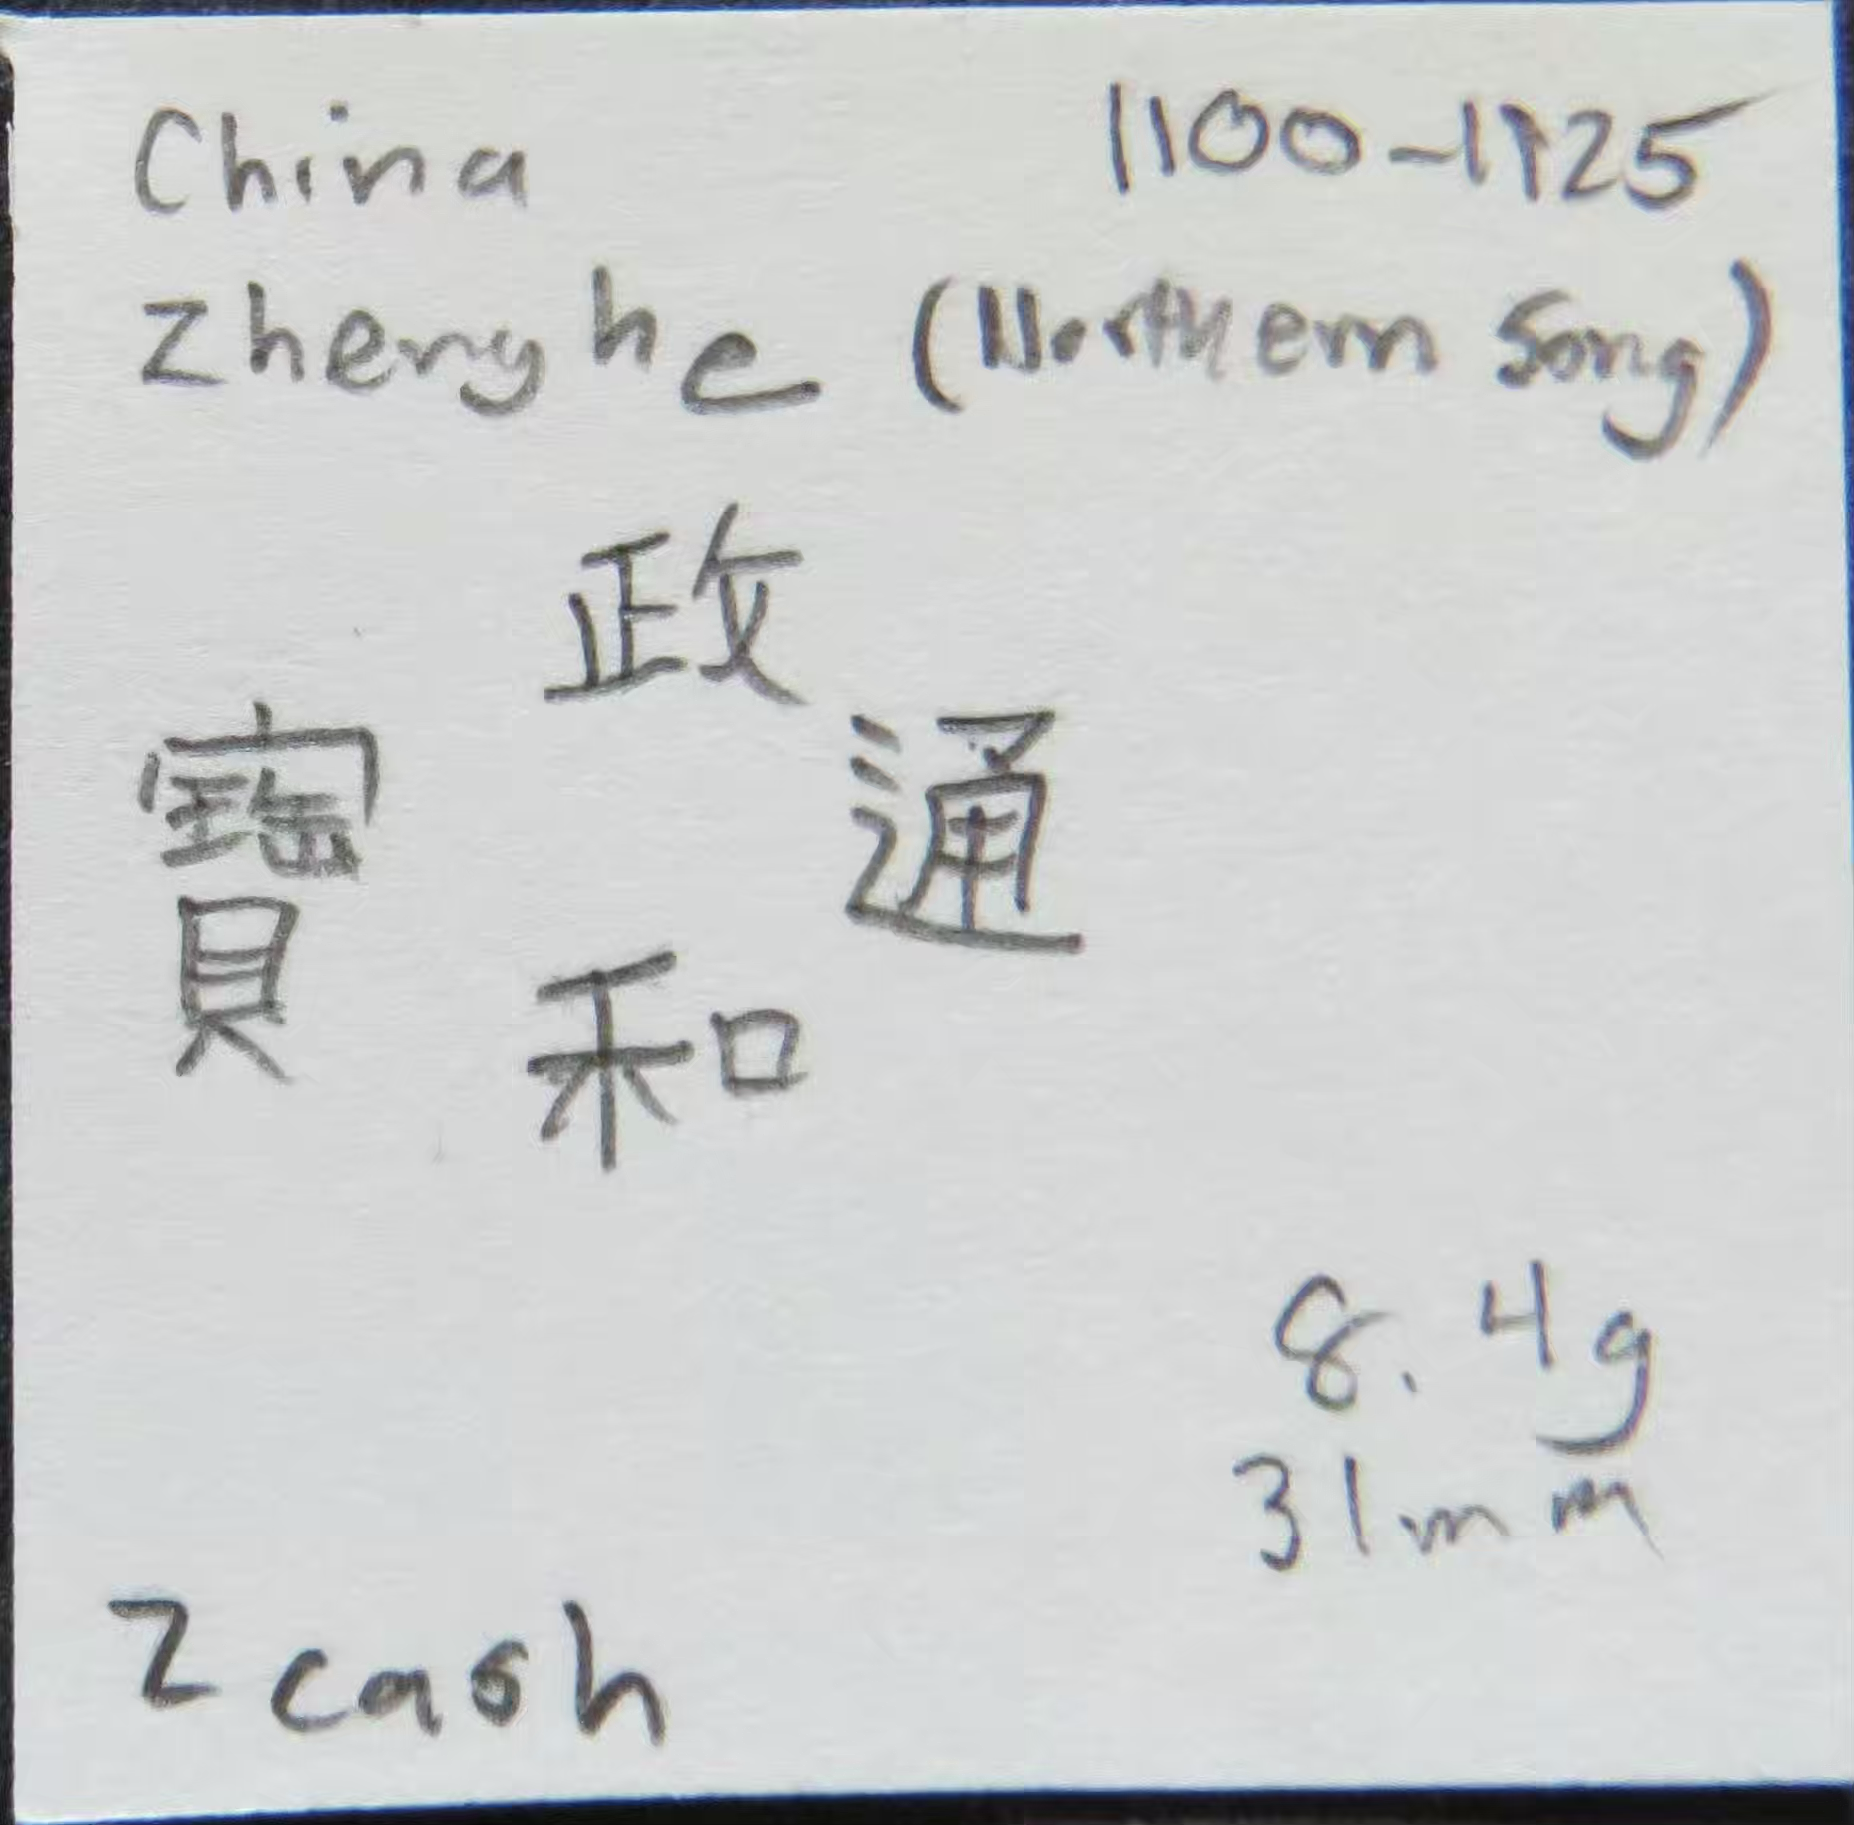 China 1100-1125
Zhenghe (Northern Song)
政
寶 通
和
8.4g
31mm
2 cash